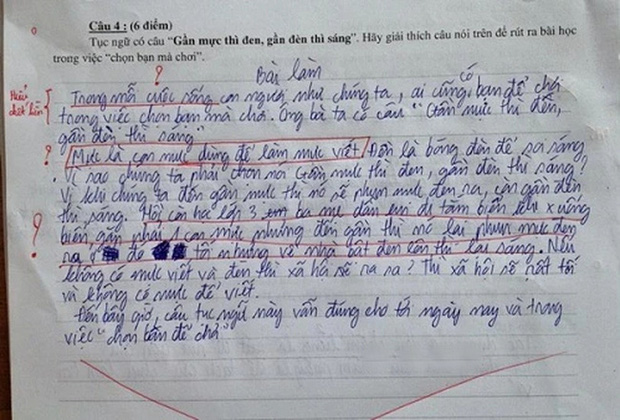 Câu 4 : (6 điểm)
Tục ngữ có câu “Gần mực thì đen, gần đèn thì sáng”. Hãy giải thích câu nói trên để rút ra bài học
trong việc “chọn bạn mà chơi”.
?
Bài làm
Trong mỗi cuộc sống con người như chúng ta, ai cũng có bạn để chơi
trong việc chọn bạn mà chơi. Ông bà ta có câu "Gần mực thì đen,
gần đèn thì sáng"
? Mực là con mực dùng để làm mực viết. Đèn là bóng đèn để soi sáng
. Vì sao chúng ta phải chọn nơi Gần mực thì đen, gần đèn thì sáng?
Vì khi chúng ta đến gần mực thì nó sẽ phun mực đen ra, còn gần đèn
thì sáng. Hồi còn học lớp 3, em ba mẹ dẫn em đi tắm biển khi xuống
biển, gần phải 1 con mực nhưng đến gần thì nó lại phun mực đen
? ra đó tối nhưng về nhà bật đèn lên thì lại sáng. Nếu
không có mực viết và đèn thì xã hội sẽ ra sao? Thì xã hội sẽ rất tối
và không có mực để viết.
Đến bây giờ, câu tục ngữ này vẫn đúng cho tới ngày nay và trong
việc "chọn bạn để chơi